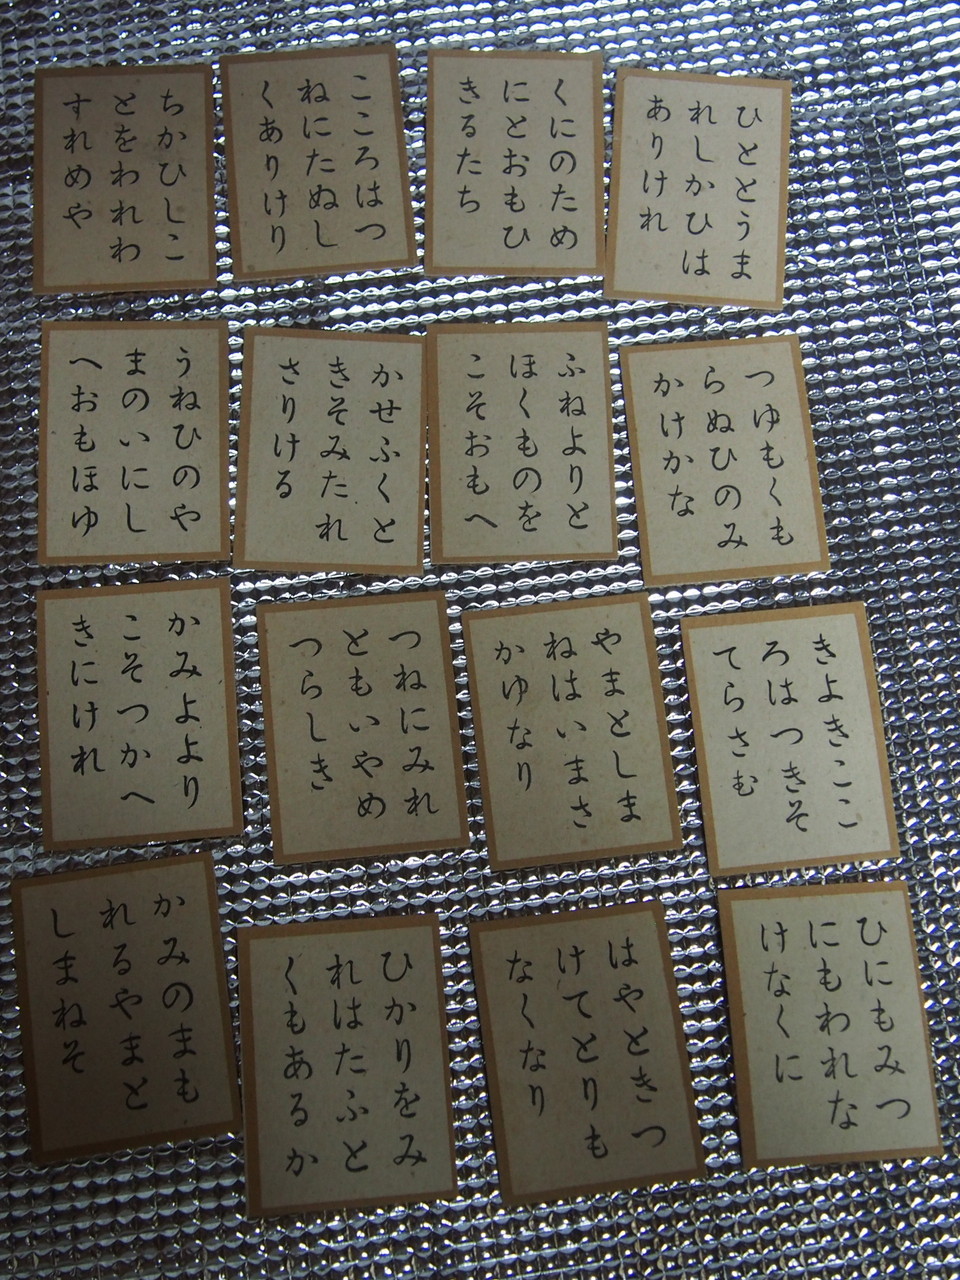 ひととうま
れしかひは
ありけれ
くにのため
にとおもひ
きるたち
こころはつ
ねにたぬし
くありけり
ちかひしこ
とをわれわ
すれめや
つゆもくも
らぬひのみ
かけかな
ふねよりと
ほくものを
こそおもへ
かせふくと
きそみたれ
さりける
うねひのや
まのいにし
へおもほゆ
きよきここ
ろはつきそ
てらさむ
やまとしま
ねはいまさ
かゆなり
つねにみれ
ともいやめ
つらしき
かみよより
こそつかへ
きにけれ
ひにもみつ
にもわれな
けなくに
はやときつ
けてとりも
なくなり
ひかりをみ
れはたふと
くもあるか
かみのまも
れるやまと
しまねそ